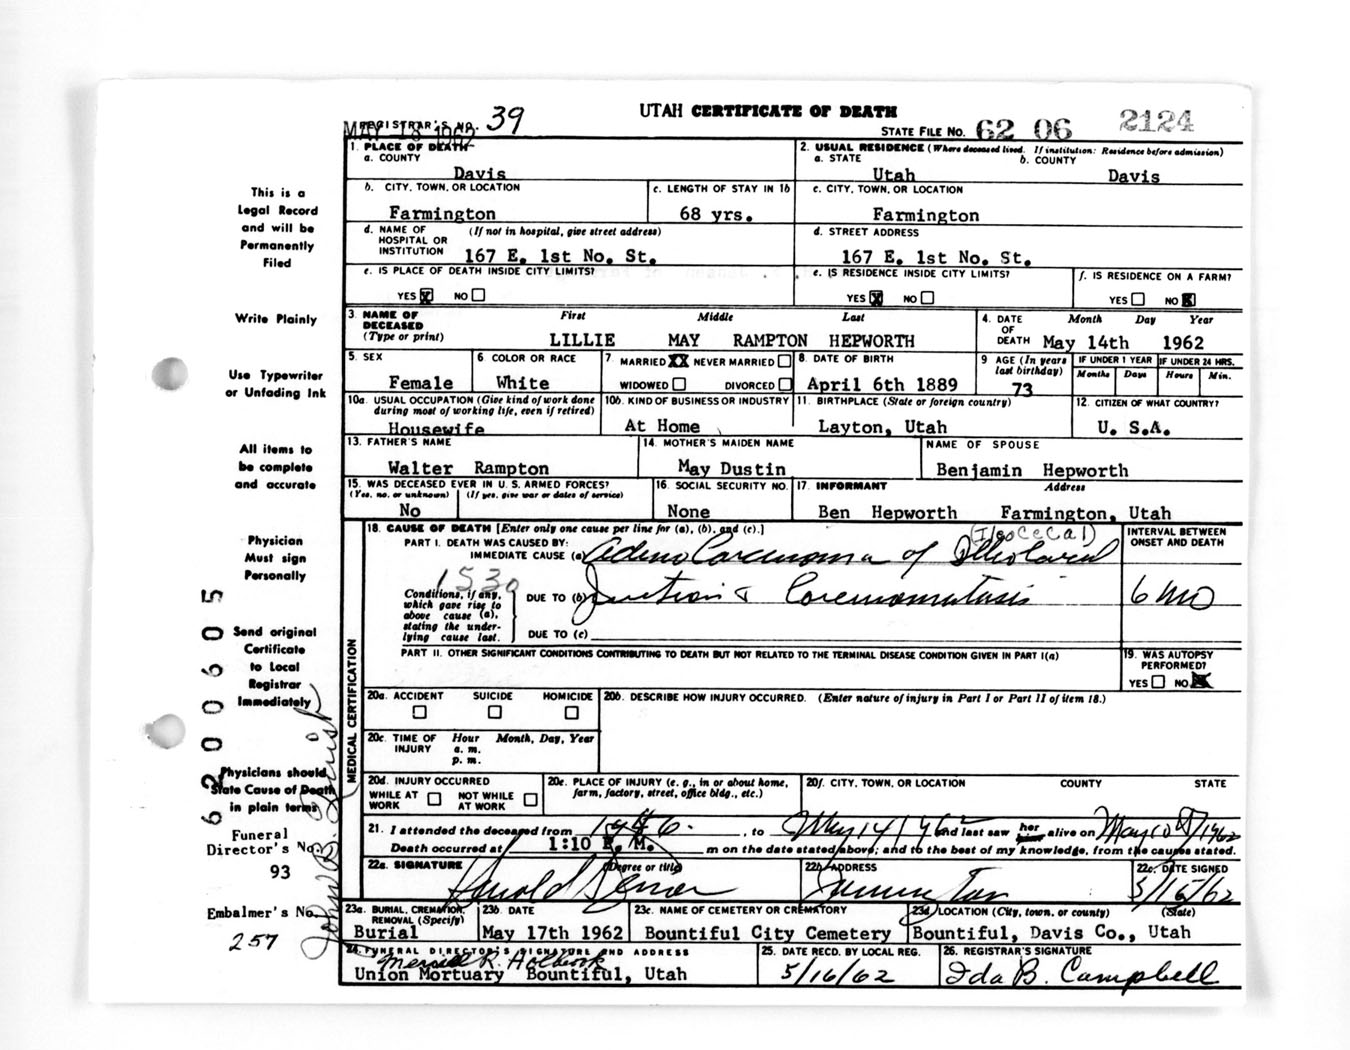 UTAH CERTIFICATE OF DEATH
REGISTRAR'S NO. 39
MAY 18 1962
STATE FILE NO. 62 06 2124
1. PLACE OF DEATH
a. COUNTY
Davis
2. USUAL RESIDENCE (Where deceased lived. If institution: Residence before admission)
a. STATE b. COUNTY
Utah Davis
b. CITY, TOWN, OR LOCATION
Farmington
c. LENGTH OF STAY IN 1b
68 yrs.
c. CITY, TOWN, OR LOCATION
Farmington
d. NAME OF HOSPITAL OR INSTITUTION (If not in hospital, give street address)
167 E. 1st No. St.
d. STREET ADDRESS
167 E. 1st No. St.
e. IS PLACE OF DEATH INSIDE CITY LIMITS?
YES X NO
e. IS RESIDENCE INSIDE CITY LIMITS?
YES X NO
f. IS RESIDENCE ON A FARM?
YES NO X
3. NAME OF DECEASED (Type or print)
First Middle Last
LILLIE MAY RAMPTON HEPWORTH
4. DATE OF DEATH Month Day Year
May 14th 1962
5. SEX
Female
6. COLOR OR RACE
White
7. MARRIED XX NEVER MARRIED
WIDOWED DIVORCED
8. DATE OF BIRTH
April 6th 1889
9 AGE (In years last birthday)
73
IF UNDER 1 YEAR IF UNDER 24 HRS.
Months Days Hours Min.
10a. USUAL OCCUPATION (Give kind of work done during most of working life, even if retired)
Housewife
10b. KIND OF BUSINESS OR INDUSTRY
At Home
11. BIRTHPLACE (State or foreign country)
Layton, Utah
12. CITIZEN OF WHAT COUNTRY?
U. S.A.
13. FATHER'S NAME
Walter Rampton
14. MOTHER'S MAIDEN NAME
May Dustin
NAME OF SPOUSE
Benjamin Hepworth
15. WAS DECEASED EVER IN U. S. ARMED FORCES?
(Yes, no, or unknown) (If yes, give war or dates of service)
No
16. SOCIAL SECURITY NO.
None
17. INFORMANT Address
Ben Hepworth Farmington, Utah
MEDICAL CERTIFICATION
18. CAUSE OF DEATH [Enter only one cause per line for (a), (b), and (c).]
INTERVAL BETWEEN ONSET AND DEATH
PART I. DEATH WAS CAUSED BY: (IleoCeCal)
IMMEDIATE CAUSE (a) Adeno Carcinoma of
1530
Conditions, if any, which gave rise to above cause (a), stating the underlying cause last.
DUE TO (b) Junction & Carcinomatosis 6 mo
DUE TO (c)
PART II. OTHER SIGNIFICANT CONDITIONS CONTRIBUTING TO DEATH BUT NOT RELATED TO THE TERMINAL DISEASE CONDITION GIVEN IN PART I(a)
19. WAS AUTOPSY PERFORMED?
YES NO X
20a. ACCIDENT SUICIDE HOMICIDE
20b. DESCRIBE HOW INJURY OCCURRED. (Enter nature of injury in Part I or Part II of item 18.)
20c. TIME OF INJURY Hour Month, Day, Year
a. m.
p. m.
20d. INJURY OCCURRED
WHILE AT WORK NOT WHILE AT WORK
20e. PLACE OF INJURY (e. g., in or about home, farm, factory, street, office bldg., etc.)
20f. CITY, TOWN, OR LOCATION COUNTY STATE
21. I attended the deceased from 1946, to May 14 1962 and last saw her alive on May 10 1962
Death occurred at 1:10 P. M. m on the date stated above; and to the best of my knowledge, from the causes stated.
22a. SIGNATURE (Degree or title)
Harold
22b. ADDRESS
22c. DATE SIGNED
5/15/62
23a. BURIAL, CREMATION, REMOVAL (Specify)
Burial
23b. DATE
May 17th 1962
23c. NAME OF CEMETERY OR CREMATORY
Bountiful City Cemetery
23d. LOCATION (City, town, or county) (State)
Bountiful, Davis Co., Utah
24. FUNERAL DIRECTOR'S SIGNATURE AND ADDRESS
Merrill R. Holbrook
Union Mortuary Bountiful, Utah
25. DATE RECD. BY LOCAL REG.
5/16/62
26. REGISTRAR'S SIGNATURE
Ida B. Campbell
This is a
Legal Record
and will be
Permanently
Filed
Write Plainly
Use Typewriter
or Unfading Ink
All items to
be complete
and accurate
Physician
Must sign
Personally
Send original
Certificate
to Local
Registrar
Immediately
Physicians should
State Cause of Death
in plain terms
Funeral
Director's No.
93
Embalmer's No.
257
62 00605
John B.